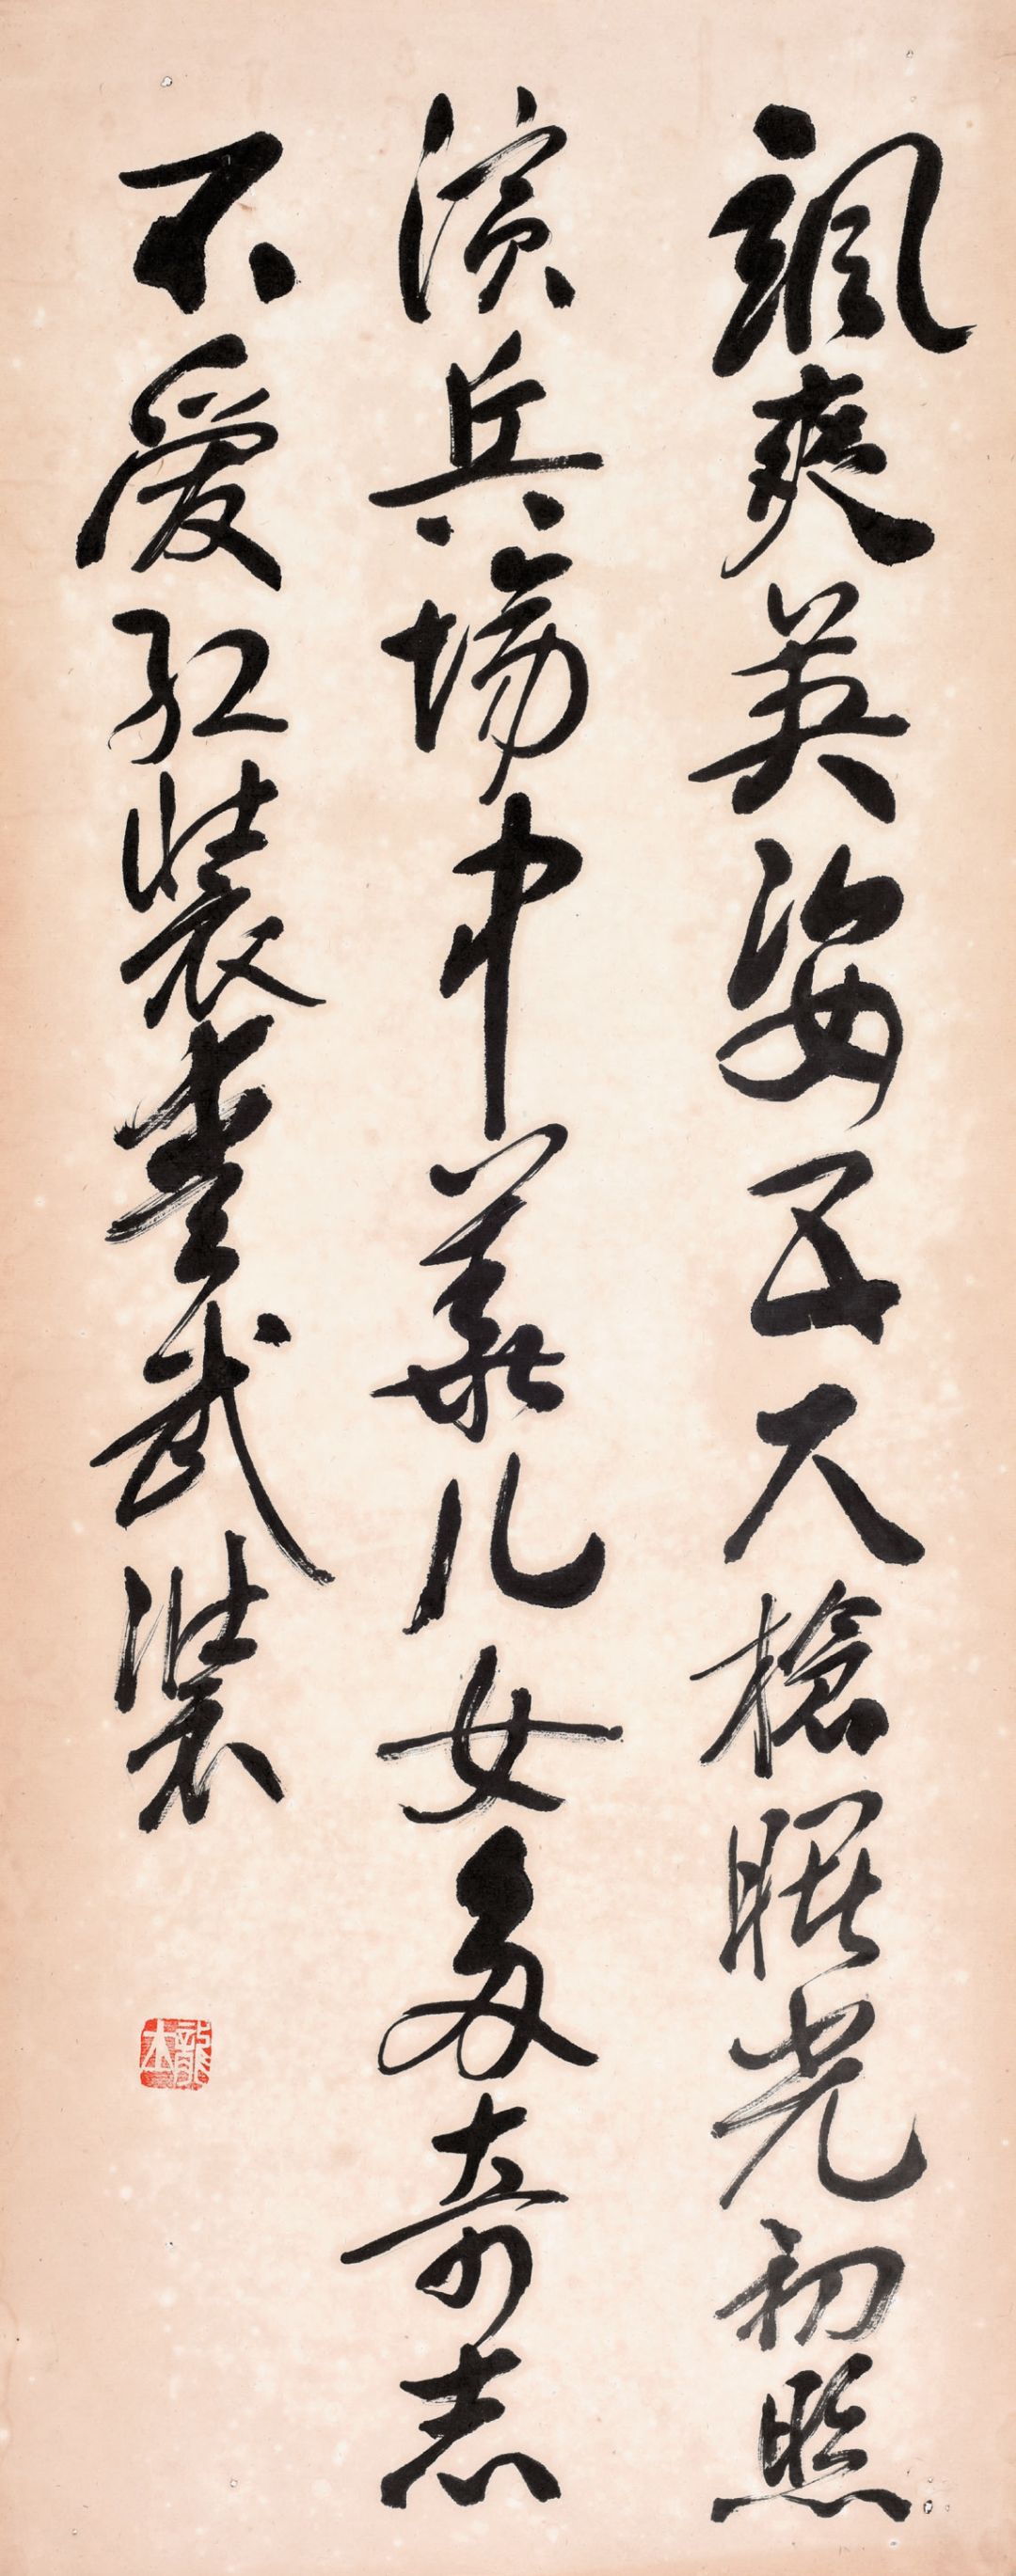 颯爽英姿五尺槍曙光初照
演兵場中華儿女多奇志
不爱红裝愛武裝